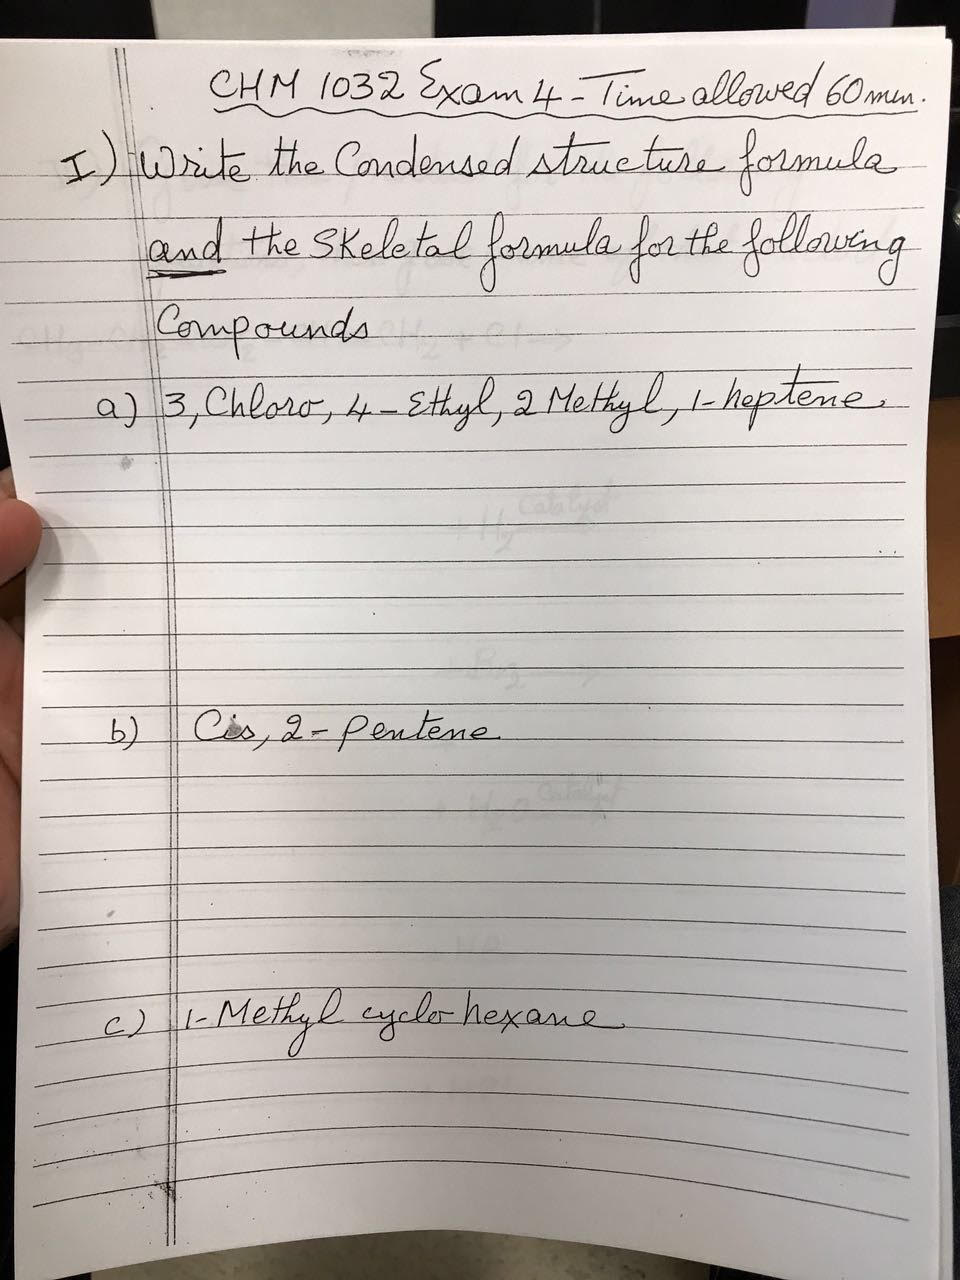 CHM 1032 Exam 4 - Time allowed 60 min.
I) Write the Condensed structure formula
and the Skeletal formula for the following
Compounds
a) 3, Chloro, 4-Ethyl, 2 Methyl, 1-heptene.
b) Cis, 2-pentene
c) 1-Methyl cyclo hexane